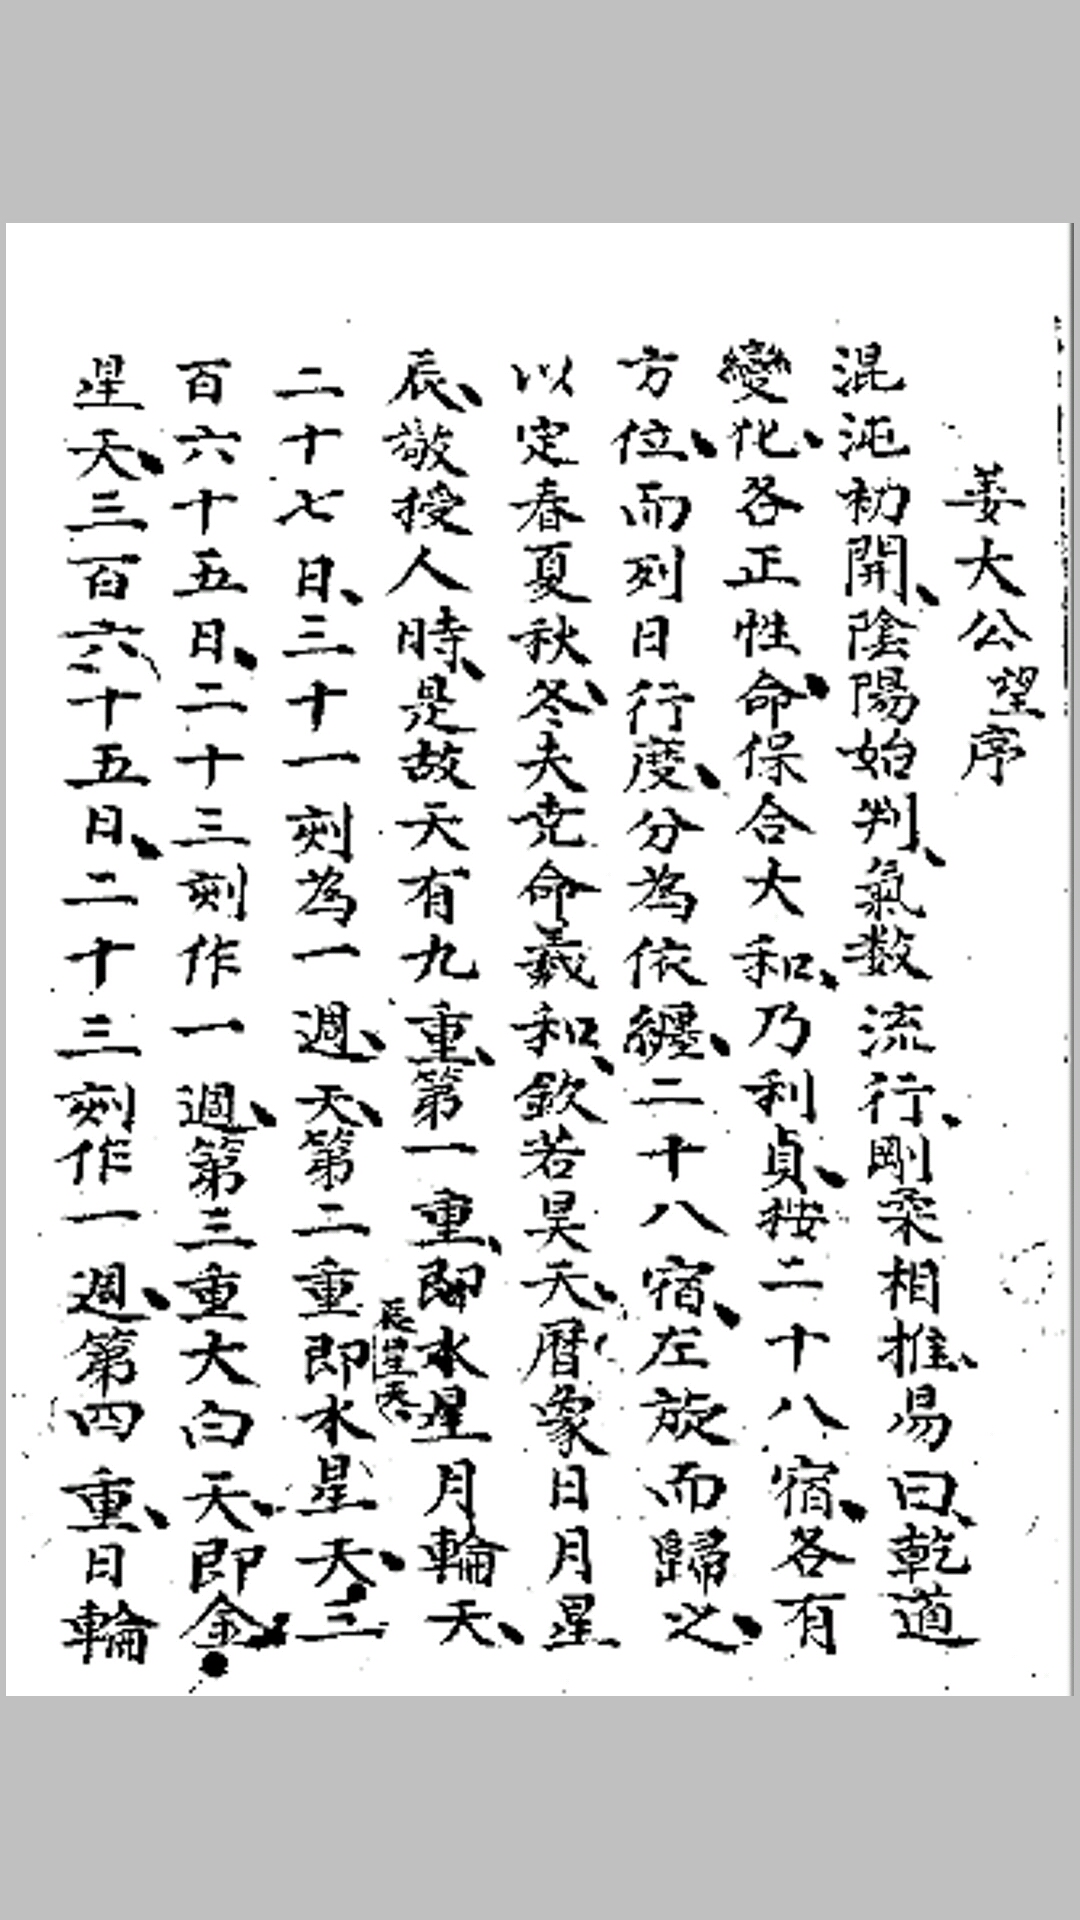 姜大公望序
混沌初開陰陽始判氣数流行剛柔相推易曰乾道
變化各正性命保合大和乃利貞按二十八宿各有
方位而列日行度分為依纏二十八宿左旋而歸之
以定春夏秋冬夫堯命羲和欽若昊天曆象日月星
辰敬授人時是故天有九重第一重即水星月輪天
辰星天
二十七日三十一刻為一週天第二重即水星天三
百六十五日二十三刻作一週第三重大白天即金
星天三百六十五日二十三刻作一週第四重日輪